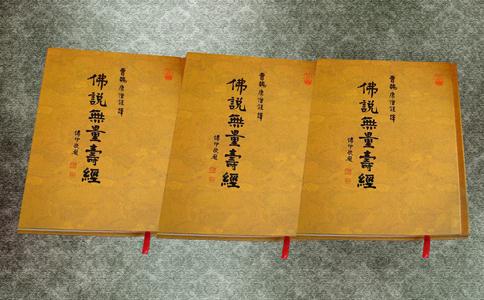 曹魏康僧鎧譯
佛說無量壽經
傳印敬題
曹魏康僧鎧譯
佛說無量壽經
傳印敬題
曹魏康僧鎧譯
佛說無量壽經
傳印敬題